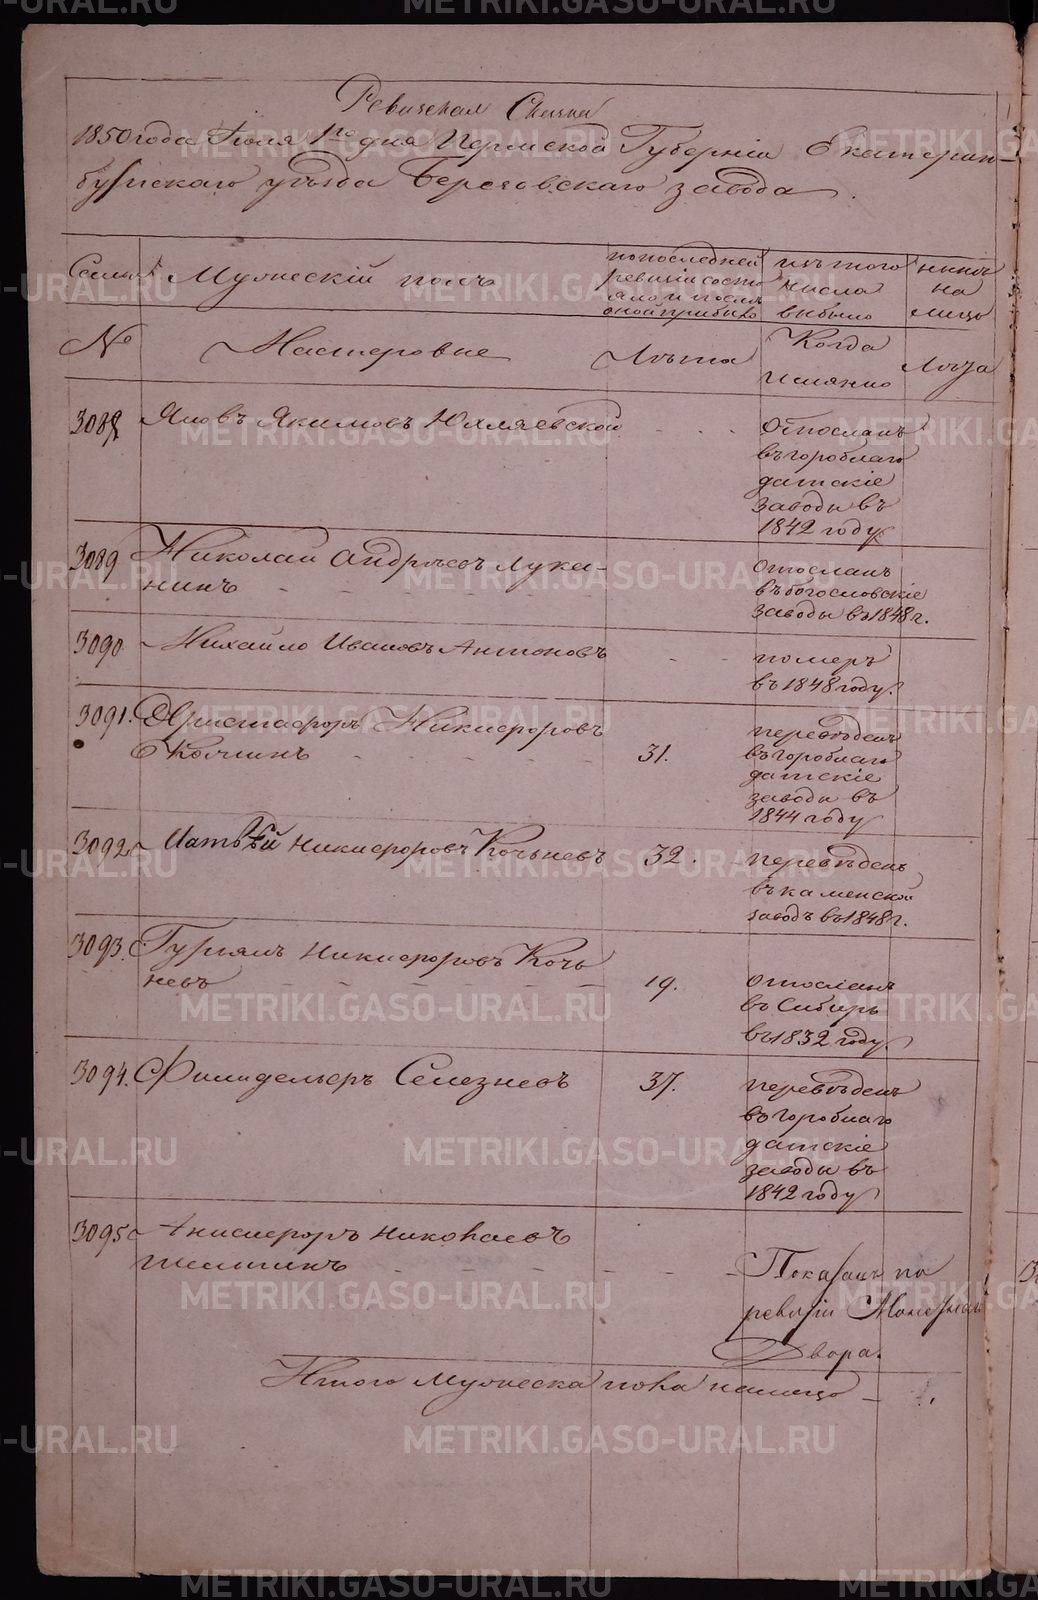 Ревижская Сказка
1850 года Июля 1го дня Пермской Губерніи Екатерин-
бургскаго уѣзда Березовскаго завода.
Семьи Мужескій полъ
по последней ревизіи состо яло и после оной прибыло
изъ того числа выбыло
нынѣ на лицо
№ Мастеровые Лѣта Когда именно Лѣта
3088 Яковъ Якимовъ Юхляевской - - - Отосланъ
въ гороблаго
датскіе
заводы въ
1842 году
3089 Николай Андреевъ Лука-
нинъ - - - - - - Отосланъ
въ богословскіе
заводы въ 1848 г.
3090 Михайло Ивановъ Антоновъ - - померъ
въ 1848 году.
3091. Христафоръ Никифоровъ
Колчинъ - - - - - 31. переведенъ
въ гороблаго
датскіе
заводы въ
1844 году
3092 Матвѣй Никифоровъ Кочьневъ 32. - переведенъ
въ каменской
заводъ въ 1848 г.
3093. Гурьянъ Никифоровъ Кочь
невъ - - - - - - 19. отосланъ
въ Сибирь
въ 1832 году.
3094. Филадельфъ Селезневъ 37. переведенъ
въ гороблаго
датскіе
заводы въ
1842 году
3095 Никифоръ Николаевъ
- - - - - - - - Показанъ по
ревизіи Монетнаго
Двора.
Итого Мужеска пола налицо -
METRIKI.GASO-URAL.RU